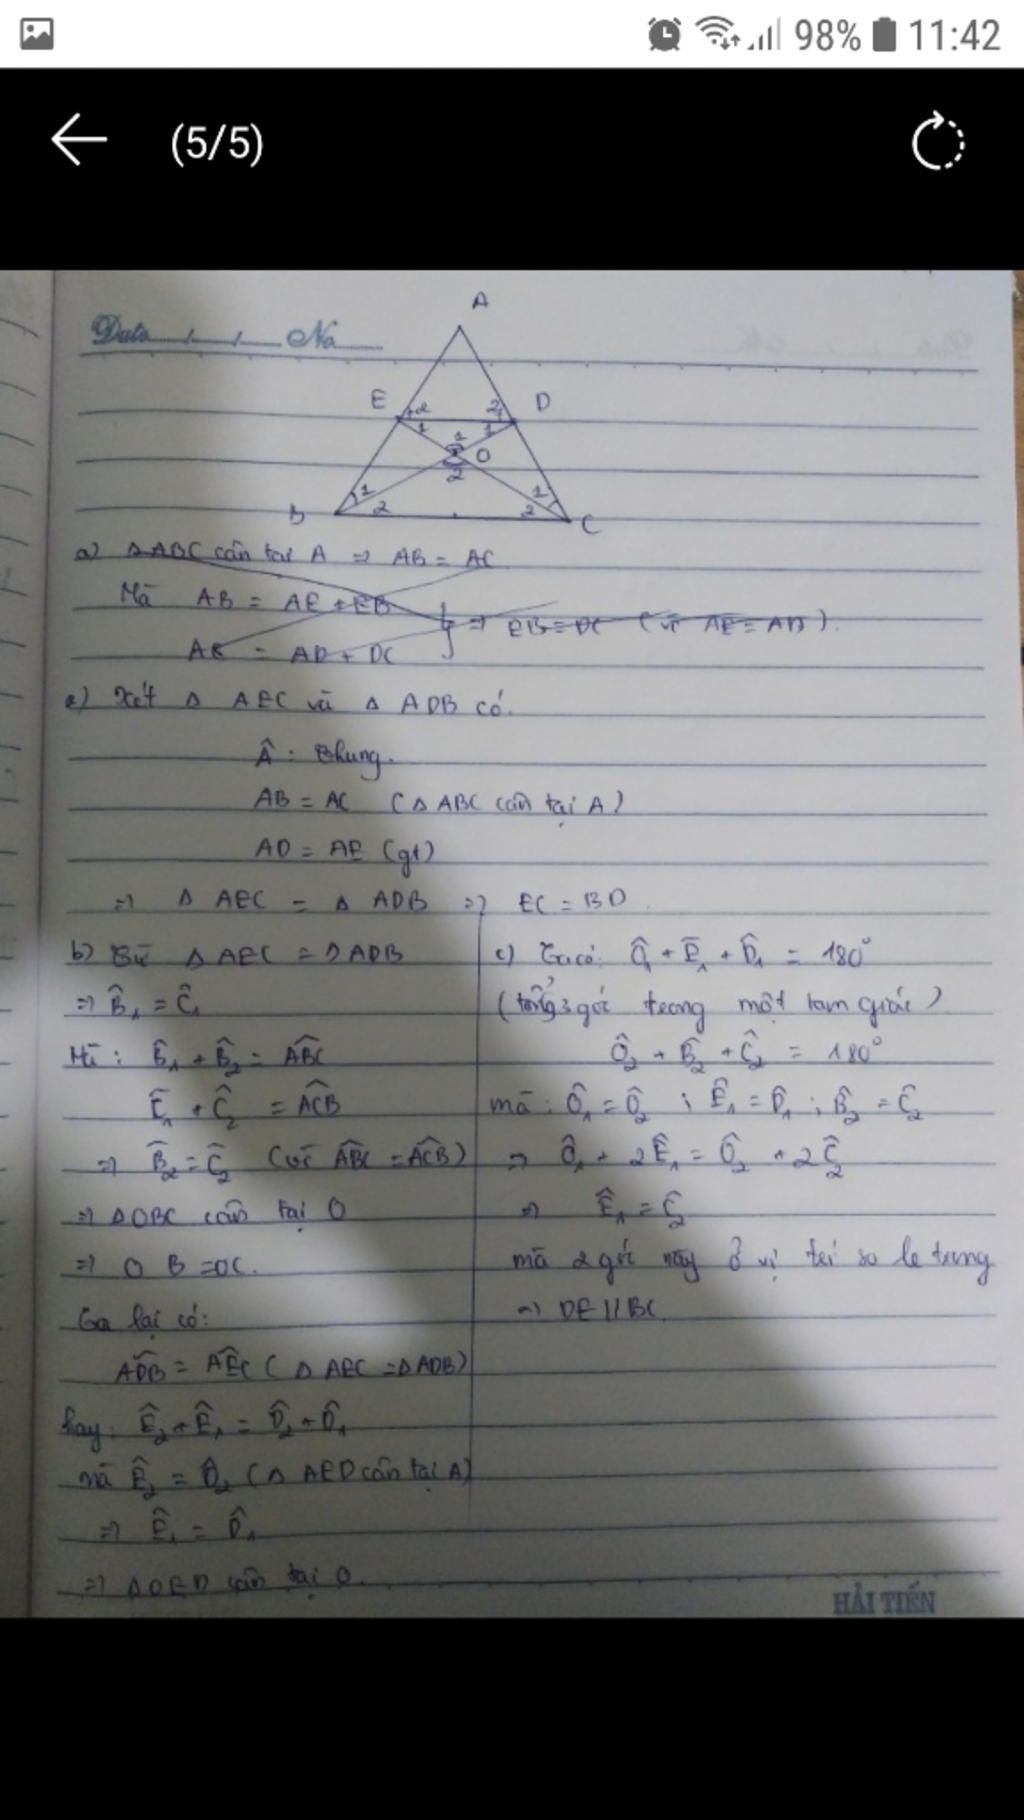 98% 11:42
(5/5)
Date / / No
A
E 2 2 D
1 1 1
O
2
1 1
B 2 2 C
a) ΔABC cân tại A => AB = AC
Mà AB = AE + EB
AC = AD + DC } => EB = DC (vì AE = AD).
a) Xét Δ AEC và Δ ADB có.
Â : Chung.
AB = AC (Δ ABC cân tại A)
AD = AE (gt)
=> Δ AEC = Δ ADB => EC = BD
b) Từ Δ AEC = Δ ADB
=> B̂₁ = Ĉ₁
Mà : B̂₁ + B̂₂ = ABC̑
Ê₁ + Ĉ₂ = ACB̑
=> B̂₂ = Ĉ₂ (vì ABC̑ = ACB̑)
=> ΔOBC cân tại O
=> OB = OC.
Ta lại có:
ADB̑ = AEC̑ (Δ AEC = Δ ADB)
hay: Ê₂ + Ê₁ = D̂₂ + D̂₁
mà Ê₂ = D̂₂ (Δ AED cân tại A)
=> Ê₁ = D̂₁
=> ΔOED cân tại O.
c) Ta có: Ô₁ + Ê₁ + D̂₁ = 180°
(tổng 3 góc trong một tam giác)
Ô₂ + B̂₂ + Ĉ₂ = 180°
mà : Ô₁ = Ô₂ ; Ê₁ = D̂₁ ; B̂₂ = Ĉ₂
=> Ô₁ + 2Ê₁ = Ô₂ + 2Ĉ₂
=> Ê₁ = Ĉ₂
mà 2 góc này ở vị trí so le trong
=> DE // BC.
HẢI TIẾN